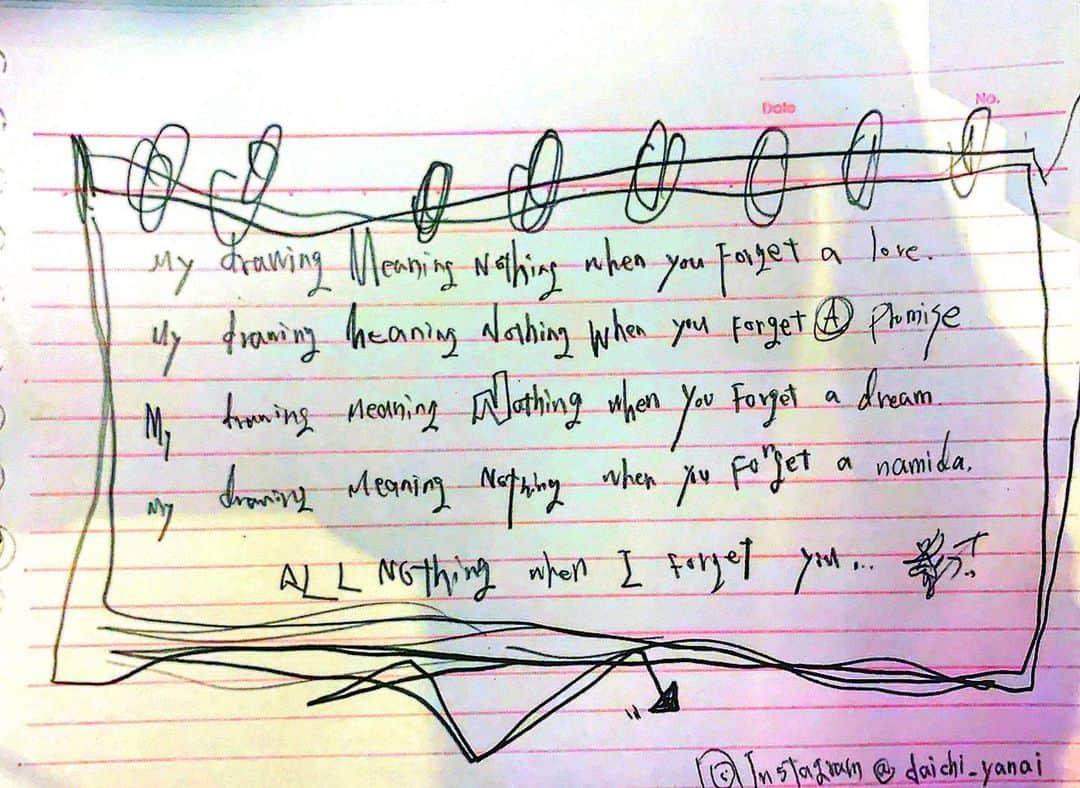 Date No.
My drawing Meaning Nothing when you Forget a love.
My drawing Meaning Nothing When you Forget Ⓐ Promise
My drawing Meaning Nothing when you Forget a dream.
My drawing Meaning Nothing when you Forget a namida.
ALL Nothing when I forget you...
Instagram @ daichi_yanai